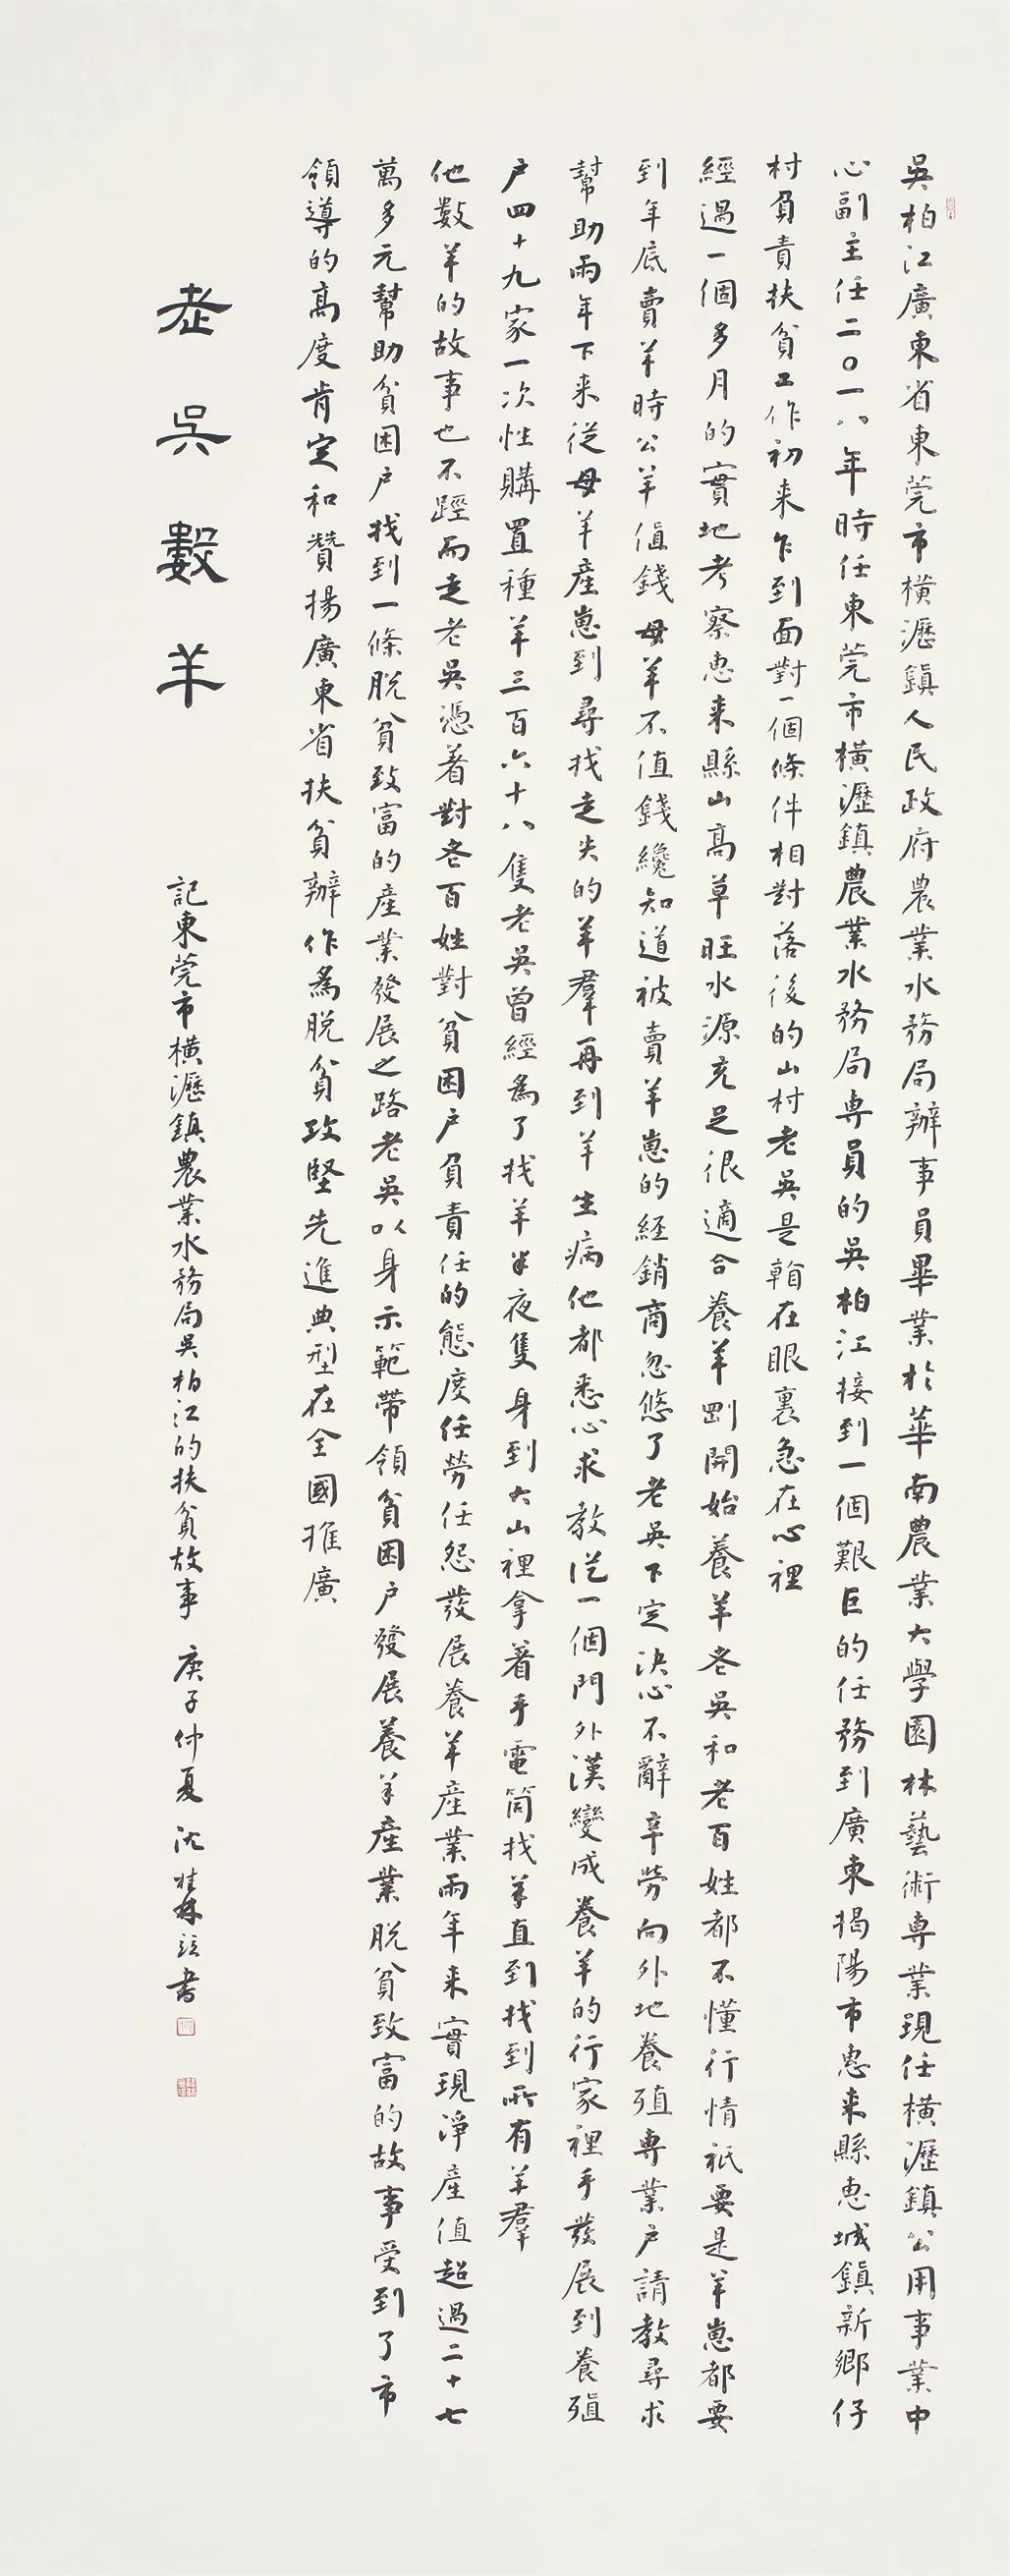 吳柏江廣東省東莞市橫瀝鎮人民政府農業水務局辦事員畢業於華南農業大學園林藝術専業現任橫瀝鎮公用事業中
心副主任二〇一八年時任東莞市橫瀝鎮農業水務局専員的吳柏江接到一個艱巨的任務到廣東揭陽市惠来縣惠城鎮新鄉仔
村負責扶貧工作初来乍到面對一個條件相對落後的山村老吳是看在眼裏急在心裡
經過一個多月的實地考察惠来縣山高草旺水源充足很適合養羊剛開始養羊老吳和老百姓都不懂行情祇要是羊崽都要
到年底賣羊時公羊值錢母羊不值錢纔知道被賣羊崽的經銷商忽悠了老吳下定决心不辭辛勞向外地養殖専業户請教尋求
幫助兩年下来從母羊産崽到尋找走失的羊羣再到羊生病他都悉心求教從一個門外漢變成養羊的行家裡手發展到養殖
户四十九家一次性購置種羊三百六十八隻老吳曾經為了找羊半夜隻身到大山裡拿着手電筒找羊直到找到所有羊羣
他數羊的故事也不踁而走老吳憑着對老百姓對貧困户負責任的態度任勞任怨發展養羊産業兩年来實現淨産值超過二十七
萬多元幫助貧困户找到一條脱貧致富的産業發展之路老吳以身示範帶領貧困户發展養羊産業脱貧致富的故事受到了市
領導的高度肯定和贊揚廣東省扶貧辦作為脱貧攻堅先進典型在全國推廣
老吳數羊
記東莞市橫瀝鎮農業水務局吳柏江的扶貧故事 庚子仲夏 沈桂林話書